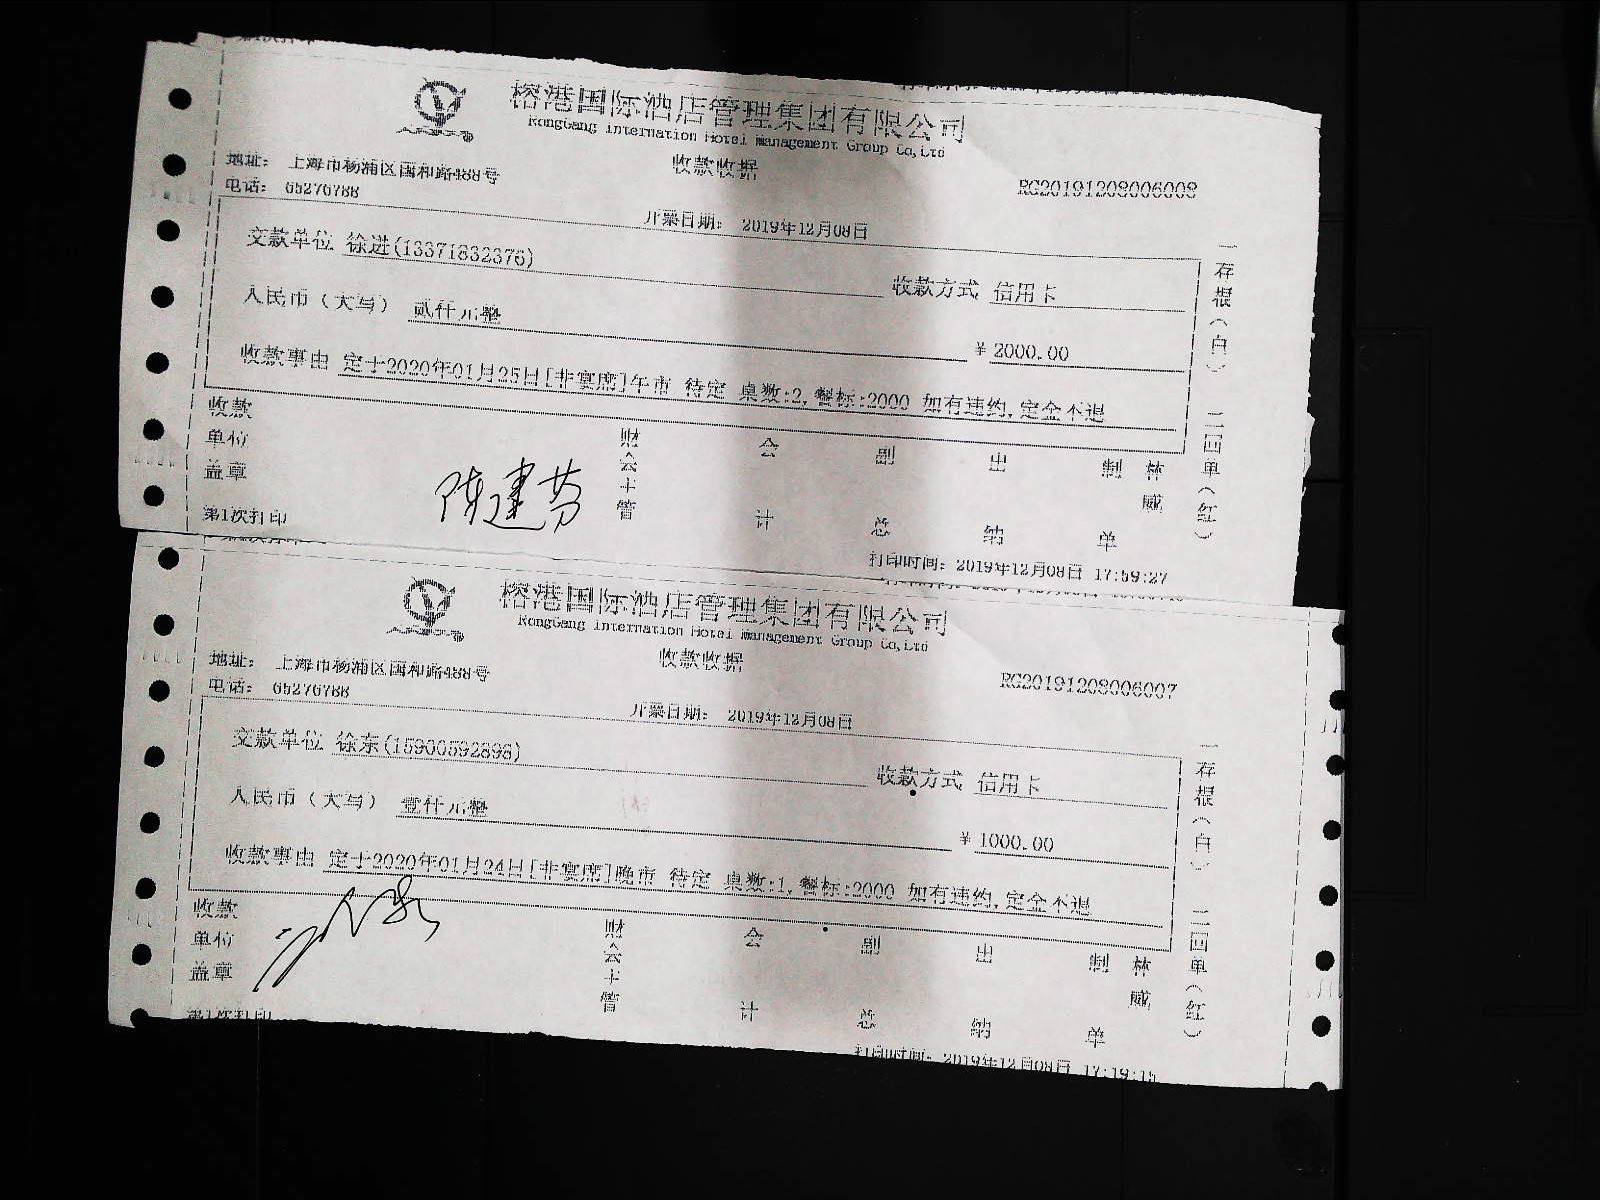 榕港国际酒店管理集团有限公司
RongGang Internation Hotel Management Group Co,Ltd
收款收据
地址： 上海市杨浦区国和路488号
电话： 65276788
RG20191208006008
开票日期： 2019年12月08日
交款单位 徐进(13371832376)
收款方式 信用卡
人民币（大写） 贰仟元整
￥2000.00
收款事由 定于2020年01月25日[非宴席]午市 待定 桌数:2,餐标:2000 如有违约,定金不退
一存根（白） 二回单（红）
收款单位盖章
陈建芬
财会主管 会计 副总 出纳 制单 林威
第1次打印
打印时间： 2019年12月08日 17:59:27
榕港国际酒店管理集团有限公司
RongGang Internation Hotel Management Group Co,Ltd
收款收据
地址： 上海市杨浦区国和路488号
电话： 65276788
RG20191208006007
开票日期： 2019年12月08日
交款单位 徐东(15900592898)
收款方式 信用卡
人民币（大写） 壹仟元整
￥1000.00
收款事由 定于2020年01月24日[非宴席]晚市 待定 桌数:1,餐标:2000 如有违约,定金不退
一存根（白） 二回单（红）
收款单位盖章
财会主管 会计 副总 出纳 制单 林威
第1次打印
打印时间： 2019年12月08日 17:19:15